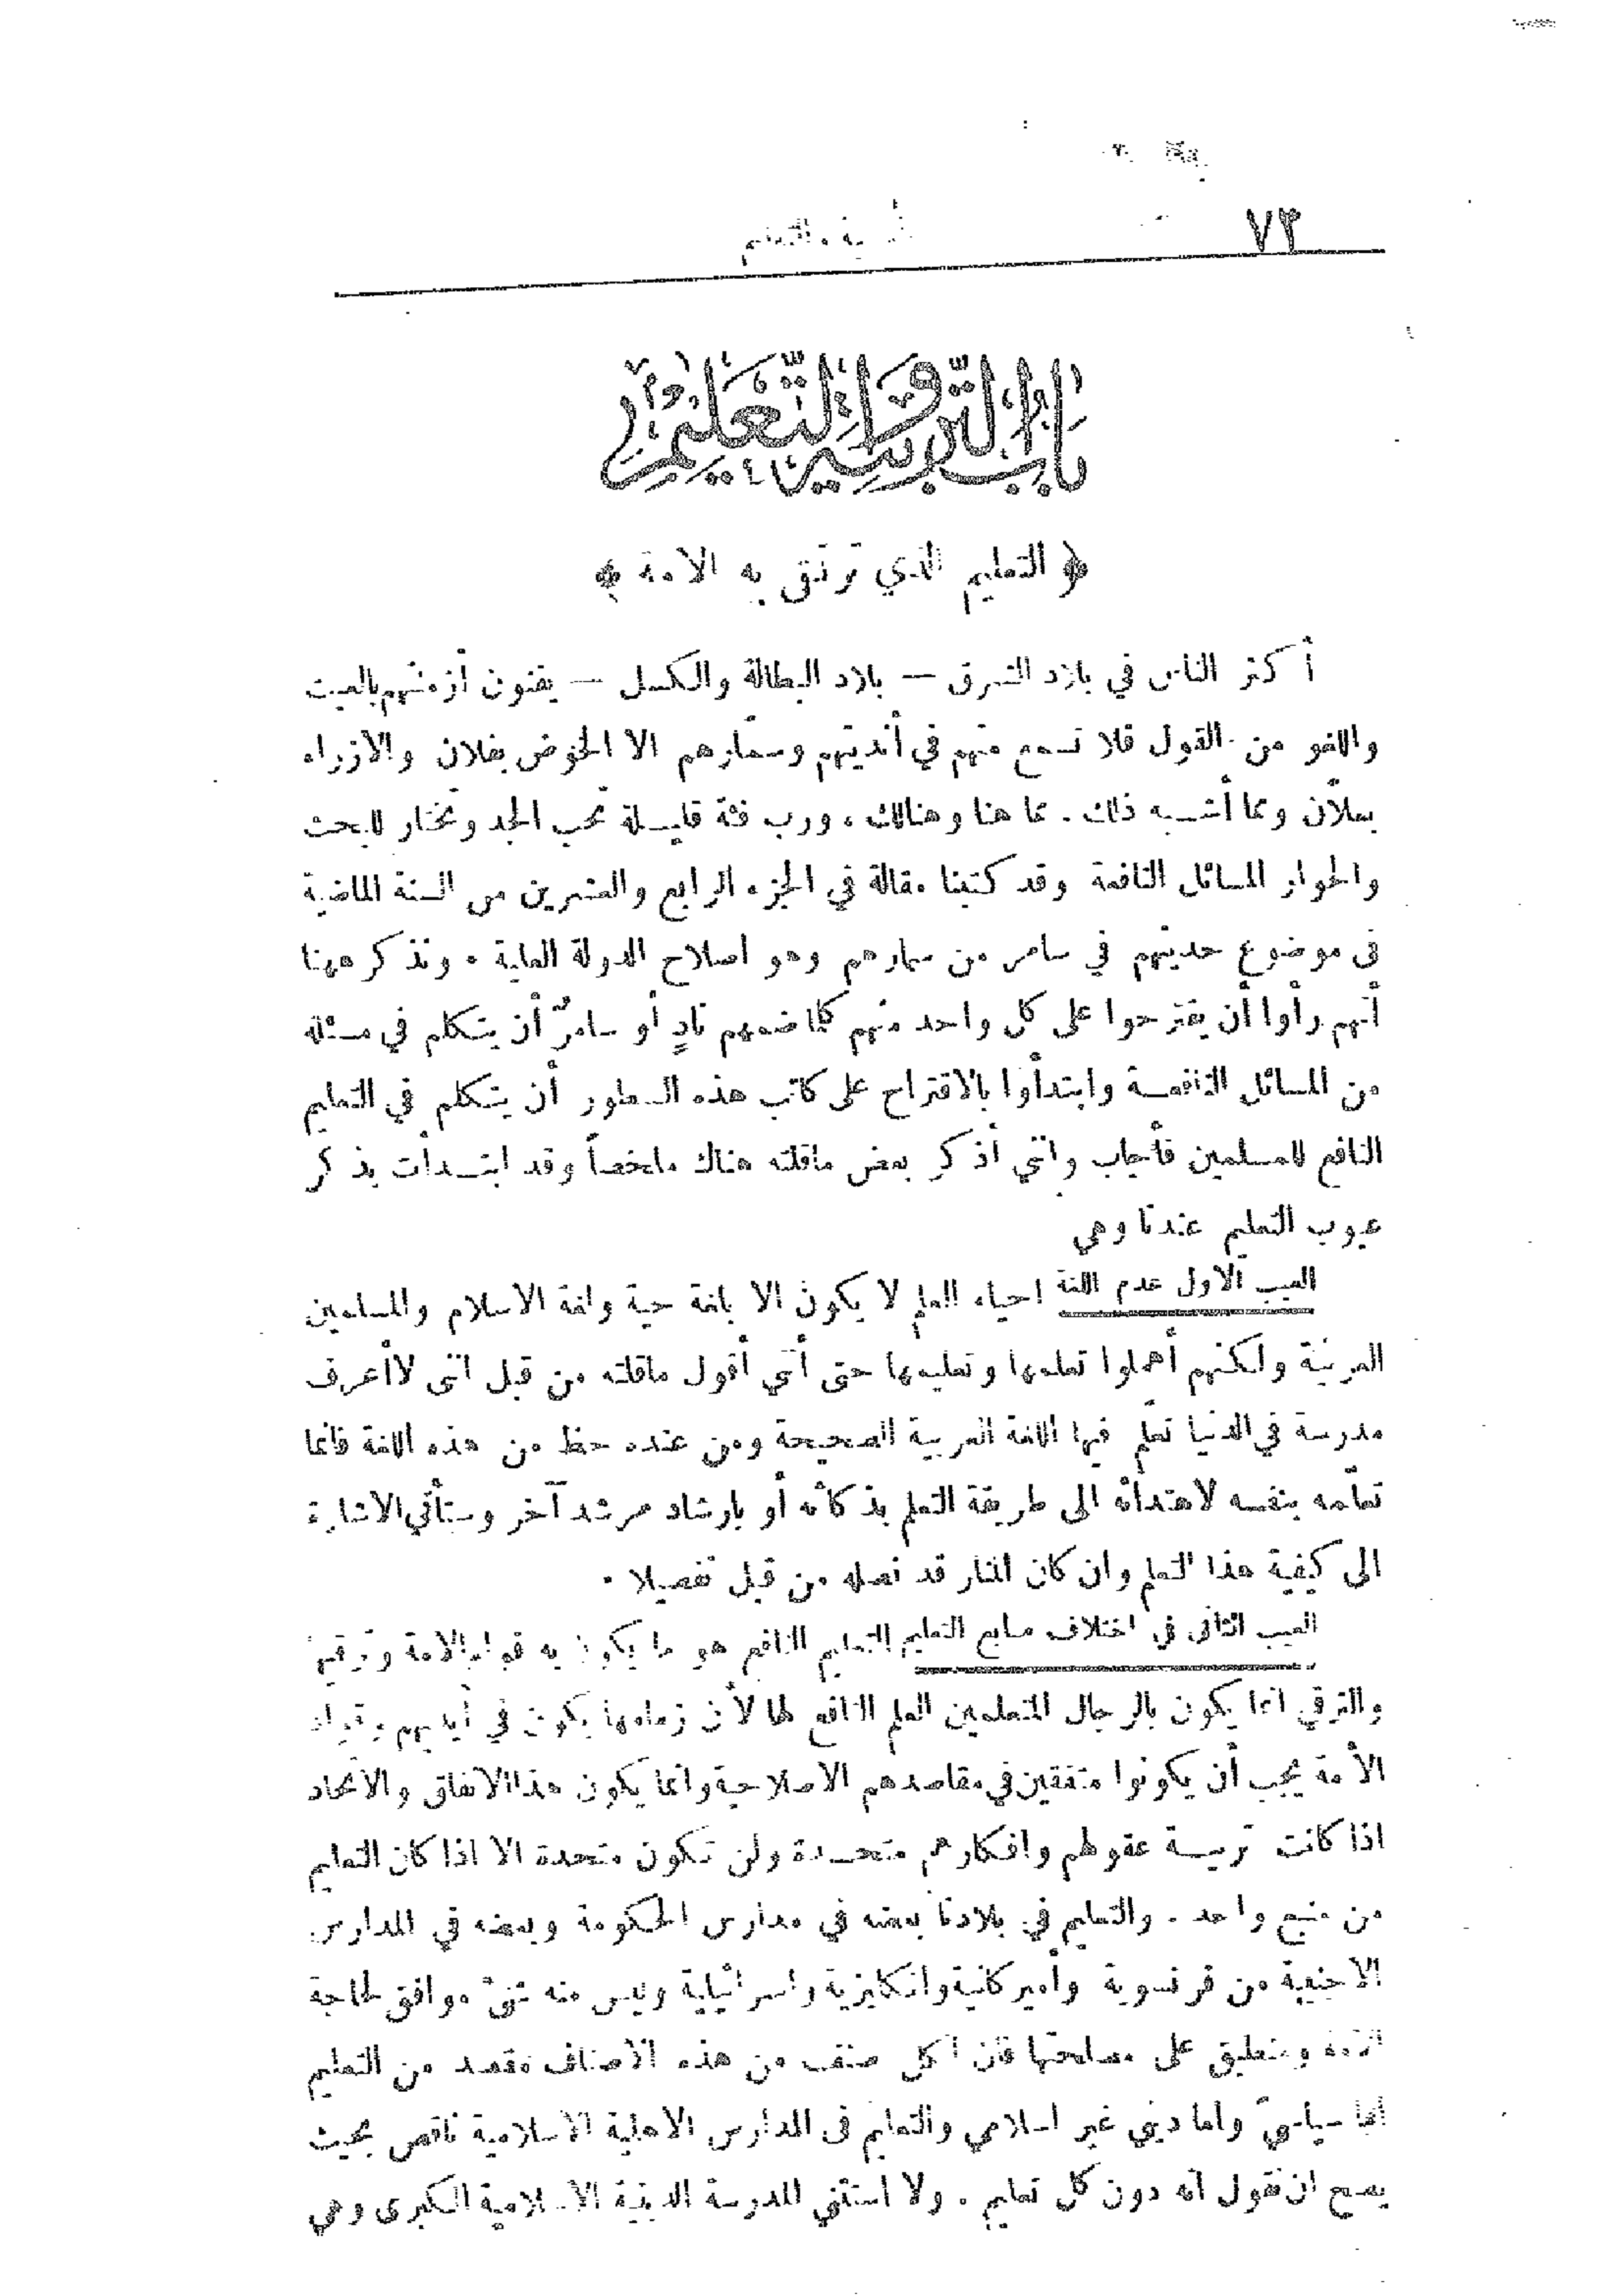 ٧٣
باب التربية والتعليم
﴿ التعليم الذي ترتقي به الامة ﴾
أكثر الناس في بلاد الشرق — بلاد البطالة والكسل — يفنون أزمنتهم بالعبث
واللغو من القول فلا تسمع منهم في أنديتهم وسمّارهم الا الخوض بفلان والازراء
بعلاّن وما أشبه ذلك . مما هنا وهنالك ، ورب فئة قليلة تحب الجد وتختار للبحث
والحوار المسائل النافعة وقد كتبنا مقالة في الجزء الرابع والعشرين من السنة الماضية
في موضوع حديثهم في سامر من سمارهم وهو اصلاح الدولة العلية . ونذكر ههنا
أنهم رأوا أن يقترحوا على كل واحد منهم كلما ضمهم نادٍ أو سامرٌ أن يتكلم في مسئلة
من المسائل النافعة وابتدأوا بالاقتراح على كاتب هذه السطور أن يتكلم في التعليم
النافع للمسلمين فأجاب وانني أذكر بعض ماقلته هناك ملخصاً وقد ابتدأت بذكر
عيوب التعليم عندنا وهي
العيب الاول عدم اللغة احياء العلم لا يكون الا بلغة حية ولغة الاسلام والمسلمين
العربية ولكنهم أهملوا تعلمها وتعليمها حتى أنني أقول ماقلته من قبل انني لاأعرف
مدرسة في الدنيا تعلّم فيها اللغة العربية الصحيحة ومن عنده حظ من هذه اللغة فانما
تعلّمه بنفسه لاهتدائه الى طريقة التعلم بذكائه أو بارشاد مرشد آخر وستأتي الاشارة
الى كيفية هذا التعلم وان كان المنار قد فصله من قبل تفصيلا .
العيب الثاني في اختلاف منابع التعليم التعليم النافع هو ما يكون به قوام الامة وترقيها
والترقي انما يكون بالرجال المتعلمين العلم النافع لها لأن زمامها يكون في أيديهم وقواد
الأمة يجب أن يكونوا متفقين في مقاصدهم الاصلاحية وانما يكون هذا الاتفاق والاتحاد
اذا كانت تربية عقولهم وافكارهم متحدة ولن تكون متحدة الا اذا كان التعليم
من منبع واحد . والتعليم في بلادنا بعضه في مدارس الحكومة وبعضه في المدارس
الاجنبية من فرنسوية وأميركانية وانكليزية واسرائيلية وليس منه شئ موافق لحاجة
الأمة ومنطبق على مصلحتها فان لكل صنف من هذه الاصناف مقصد من التعليم
اما سياسيّ واما ديني غير اسلامي والتعليم في المدارس الاهلية الاسلامية ناقص بحيث
يصح ان نقول انه دون كل تعليم . ولا أستثني المدرسة الدينية الاسلامية الكبرى وهي